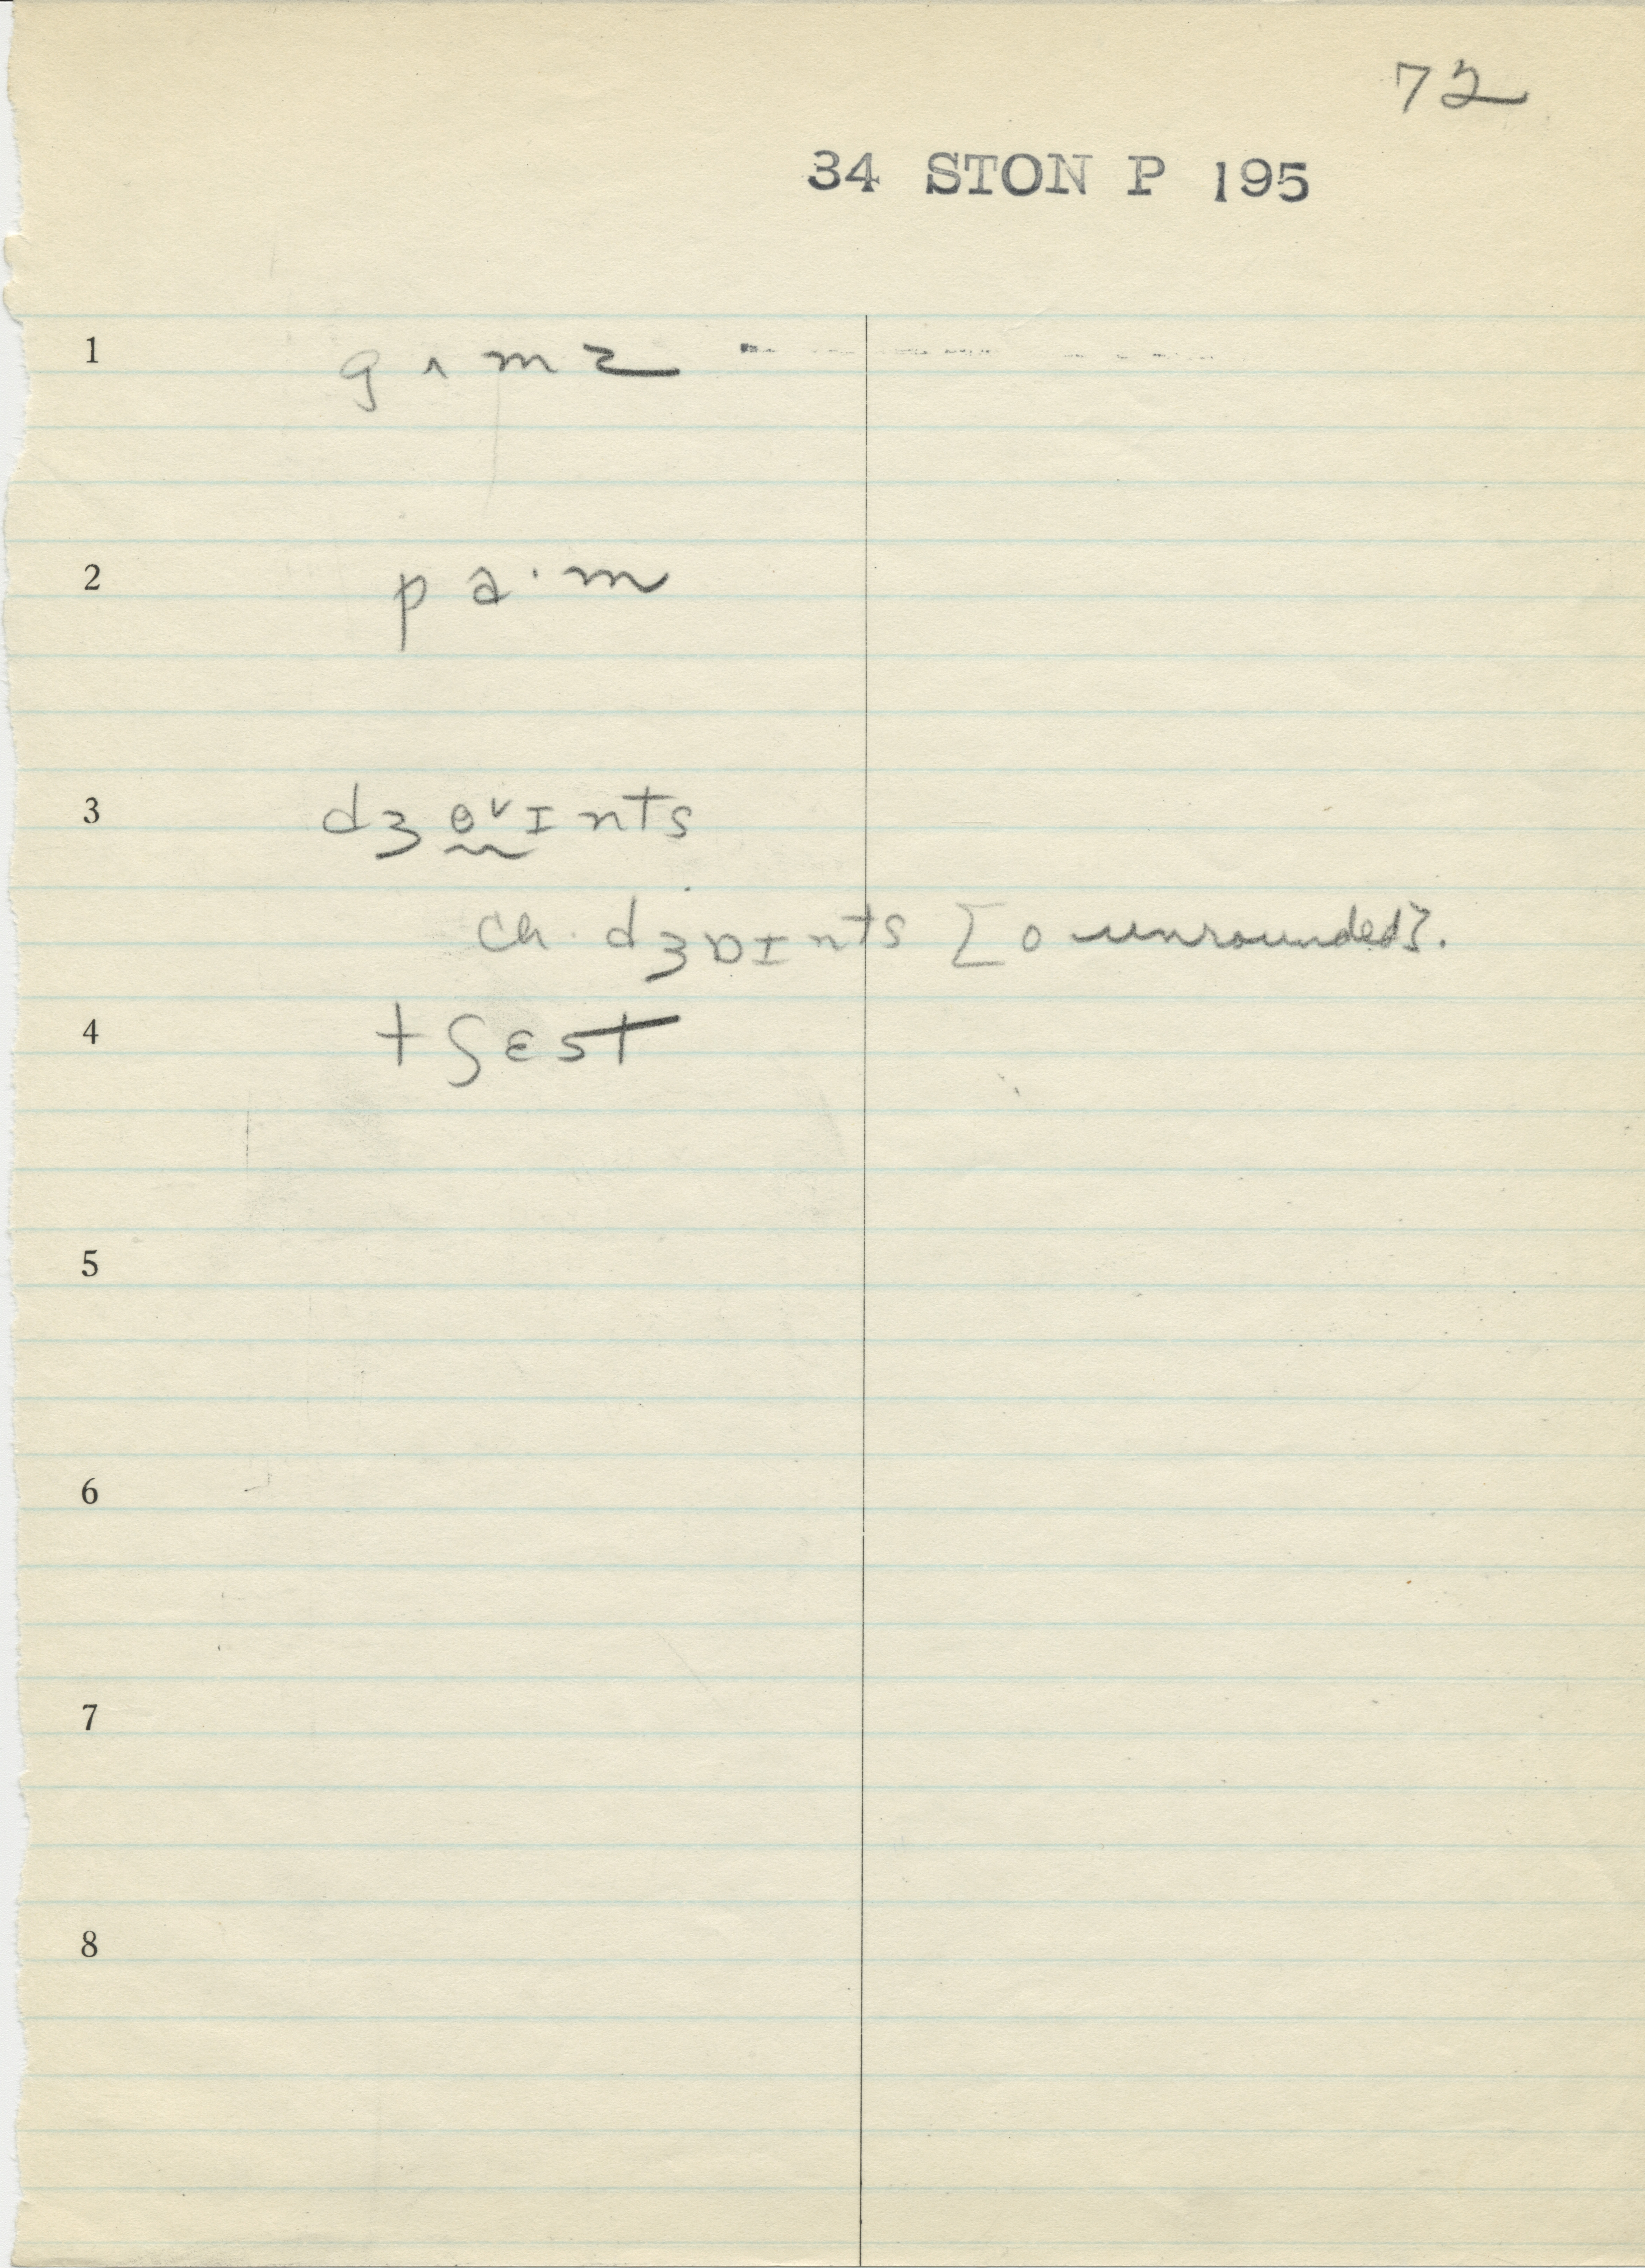 72
34 STON P 195
1 gʌmz
2 pa·m
3 dʒɵ˅ɪnts
ch. dʒɒɪnts [o unrounded].
4 tʃɛst
5
6
7
8